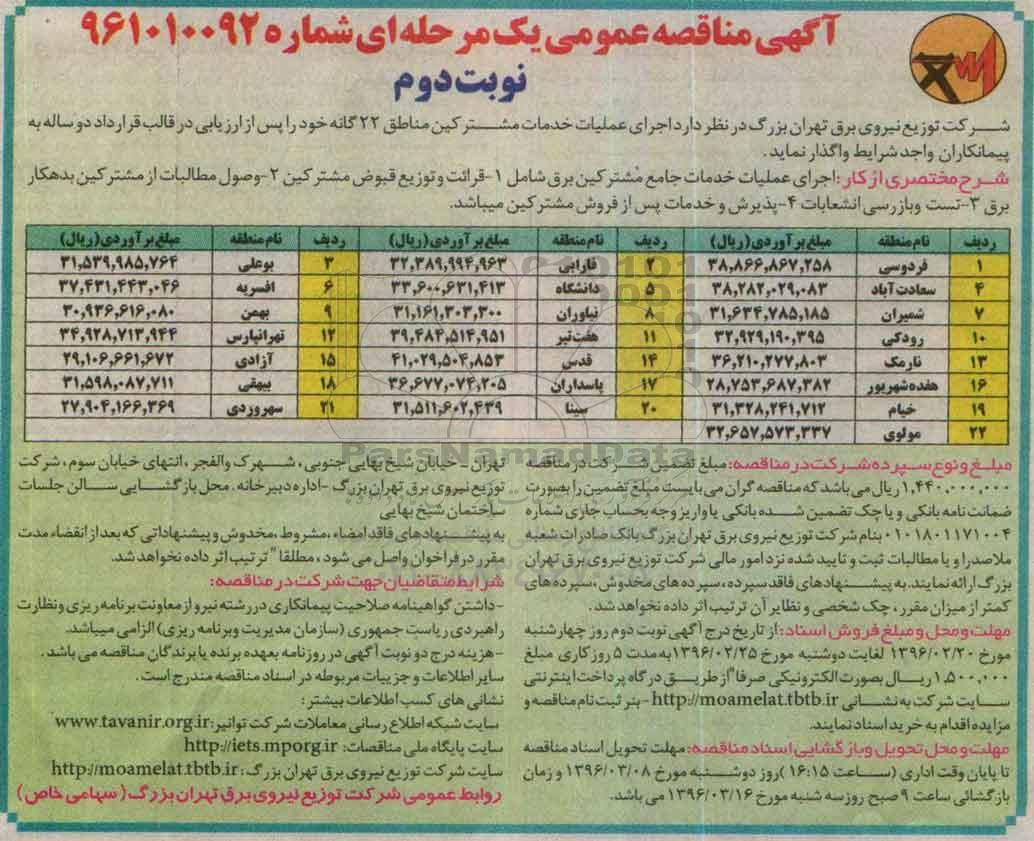 آگهی مناقصه عمومی یک مرحله ای شماره ۹۶۱۰۱۰۰۹۲
نوبت دوم
شرکت توزیع نیروی برق تهران بزرگ در نظر دارد اجرای عملیات خدمات مشترکین مناطق ۲۲ گانه خود را پس از ارزیابی در قالب قرارداد دو ساله به
پیمانکاران واجد شرایط واگذار نماید.
شرح مختصری از کار: اجرای عملیات خدمات جامع مشترکین برق شامل ۱-قرائت و توزیع قبوض مشترکین ۲-وصول مطالبات از مشترکین بدهکار
برق ۳-تست وبازرسی انشعابات ۴-پذیرش و خدمات پس از فروش مشترکین میباشد.
ردیف نام منطقه مبلغ برآوردی(ریال) ردیف نام منطقه مبلغ برآوردی(ریال) ردیف نام منطقه مبلغ برآوردی(ریال)
۱ فردوسی ۳۸,۸۶۶,۸۶۷,۲۵۸ ۲ فارابی ۳۲,۳۸۹,۹۹۴,۹۶۳ ۳ بوعلی ۳۱,۵۳۹,۹۸۵,۷۶۴
۴ سعادت آباد ۳۸,۲۸۲,۰۲۹,۰۸۳ ۵ دانشگاه ۳۳,۶۰۰,۶۳۱,۴۱۳ ۶ افسریه ۳۷,۴۳۱,۴۴۳,۰۴۶
۷ شمیران ۳۱,۶۳۴,۷۸۵,۱۸۵ ۸ نیاوران ۳۱,۱۶۱,۳۰۳,۳۰۰ ۹ بهمن ۳۰,۹۳۶,۶۱۶,۰۸۰
۱۰ رودکی ۳۲,۹۲۹,۱۹۰,۳۹۵ ۱۱ هفت تیر ۳۹,۴۸۴,۵۱۴,۹۵۱ ۱۲ تهرانپارس ۳۴,۹۲۸,۷۱۳,۹۴۴
۱۳ نارمک ۳۶,۲۱۰,۲۷۷,۸۰۳ ۱۴ قدس ۴۱,۰۲۹,۵۰۴,۸۵۳ ۱۵ آزادی ۲۹,۱۰۶,۶۶۱,۶۷۲
۱۶ هفده شهریور ۲۸,۷۵۳,۶۸۷,۳۸۲ ۱۷ پاسداران ۳۶,۶۷۷,۰۷۴,۲۰۵ ۱۸ بیهقی ۳۱,۵۹۸,۰۸۷,۷۱۱
۱۹ خیام ۳۱,۳۲۸,۲۴۱,۷۱۲ ۲۰ سینا ۳۱,۵۱۱,۶۰۲,۴۳۹ ۲۱ سهروردی ۲۷,۹۰۴,۱۶۶,۳۶۹
۲۲ مولوی ۳۲,۶۵۷,۵۷۳,۳۳۷
ParsNamadData
مبلغ و نوع سپرده شرکت در مناقصه: مبلغ تضمین شرکت در مناقصه
۱,۴۴۰,۰۰۰,۰۰۰ ریال می باشد که مناقصه گران می بایست مبلغ تضمین را بصورت
ضمانت نامه بانکی و یا چک تضمین شده بانکی یا واریز وجه بحساب جاری شماره
۰۱۰۱۸۰۱۱۷۱۰۰۴ بنام شرکت توزیع نیروی برق تهران بزرگ بانک صادرات شعبه
ملاصدرا و یا مطالبات ثبت و تایید شده نزد امور مالی شرکت توزیع نیروی برق تهران
بزرگ ارائه نمایند. به پیشنهادهای فاقد سپرده، سپرده های مخدوش، سپرده های
کمتر از میزان مقرر، چک شخصی و نظایر آن ترتیب اثر داده نخواهد شد.
مهلت و محل و مبلغ فروش اسناد: از تاریخ درج آگهی نوبت دوم روز چهارشنبه
مورخ ۱۳۹۶/۰۲/۲۰ لغایت دوشنبه مورخ ۱۳۹۶/۰۲/۲۵ به مدت ۵ روز کاری مبلغ
۱,۵۰۰,۰۰۰ ریال بصورت الکترونیکی صرفا" از طریق درگاه پرداخت اینترنتی
سایت شرکت به نشانی http://moamelat.tbtb.ir -بنر ثبت نام مناقصه و
مزایده اقدام به خرید اسناد نمایند.
مهلت و محل تحویل و بازگشایی اسناد مناقصه: مهلت تحویل اسناد مناقصه
تا پایان وقت اداری (ساعت ۱۶:۱۵) روز دوشنبه مورخ ۱۳۹۶/۰۳/۰۸ و زمان
بازگشائی ساعت ۹ صبح روز سه شنبه مورخ ۱۳۹۶/۰۳/۱۶ می باشد.
تهران - خیابان شیخ بهایی جنوبی، شهرک والفجر، انتهای خیابان سوم، شرکت
توزیع نیروی برق تهران بزرگ -اداره دبیرخانه. محل بازگشایی سالن جلسات
ساختمان شیخ بهایی
به پیشنهادهای فاقد امضاء، مشروط، مخدوش و پیشنهاداتی که بعد از انقضاء مدت
مقرر در فراخوان واصل می شود، مطلقا" ترتیب اثر داده نخواهد شد.
شرایط متقاضیان جهت شرکت در مناقصه:
-داشتن گواهینامه صلاحیت پیمانکاری در رشته نیرو از معاونت برنامه ریزی و نظارت
راهبردی ریاست جمهوری (سازمان مدیریت وبرنامه ریزی) الزامی میباشد.
-هزینه درج دو نوبت آگهی در روزنامه بعهده برنده یا برندگان مناقصه می باشد.
سایر اطلاعات و جزییات مربوطه در اسناد مناقصه مندرج است.
نشانی های کسب اطلاعات بیشتر:
سایت شبکه اطلاع رسانی معاملات شرکت توانیر: www.tavanir.org.ir
سایت پایگاه ملی مناقصات: http://iets.mporg.ir
سایت شرکت توزیع نیروی برق تهران بزرگ: http://moamelat.tbtb.ir
روابط عمومی شرکت توزیع نیروی برق تهران بزرگ (سهامی خاص)